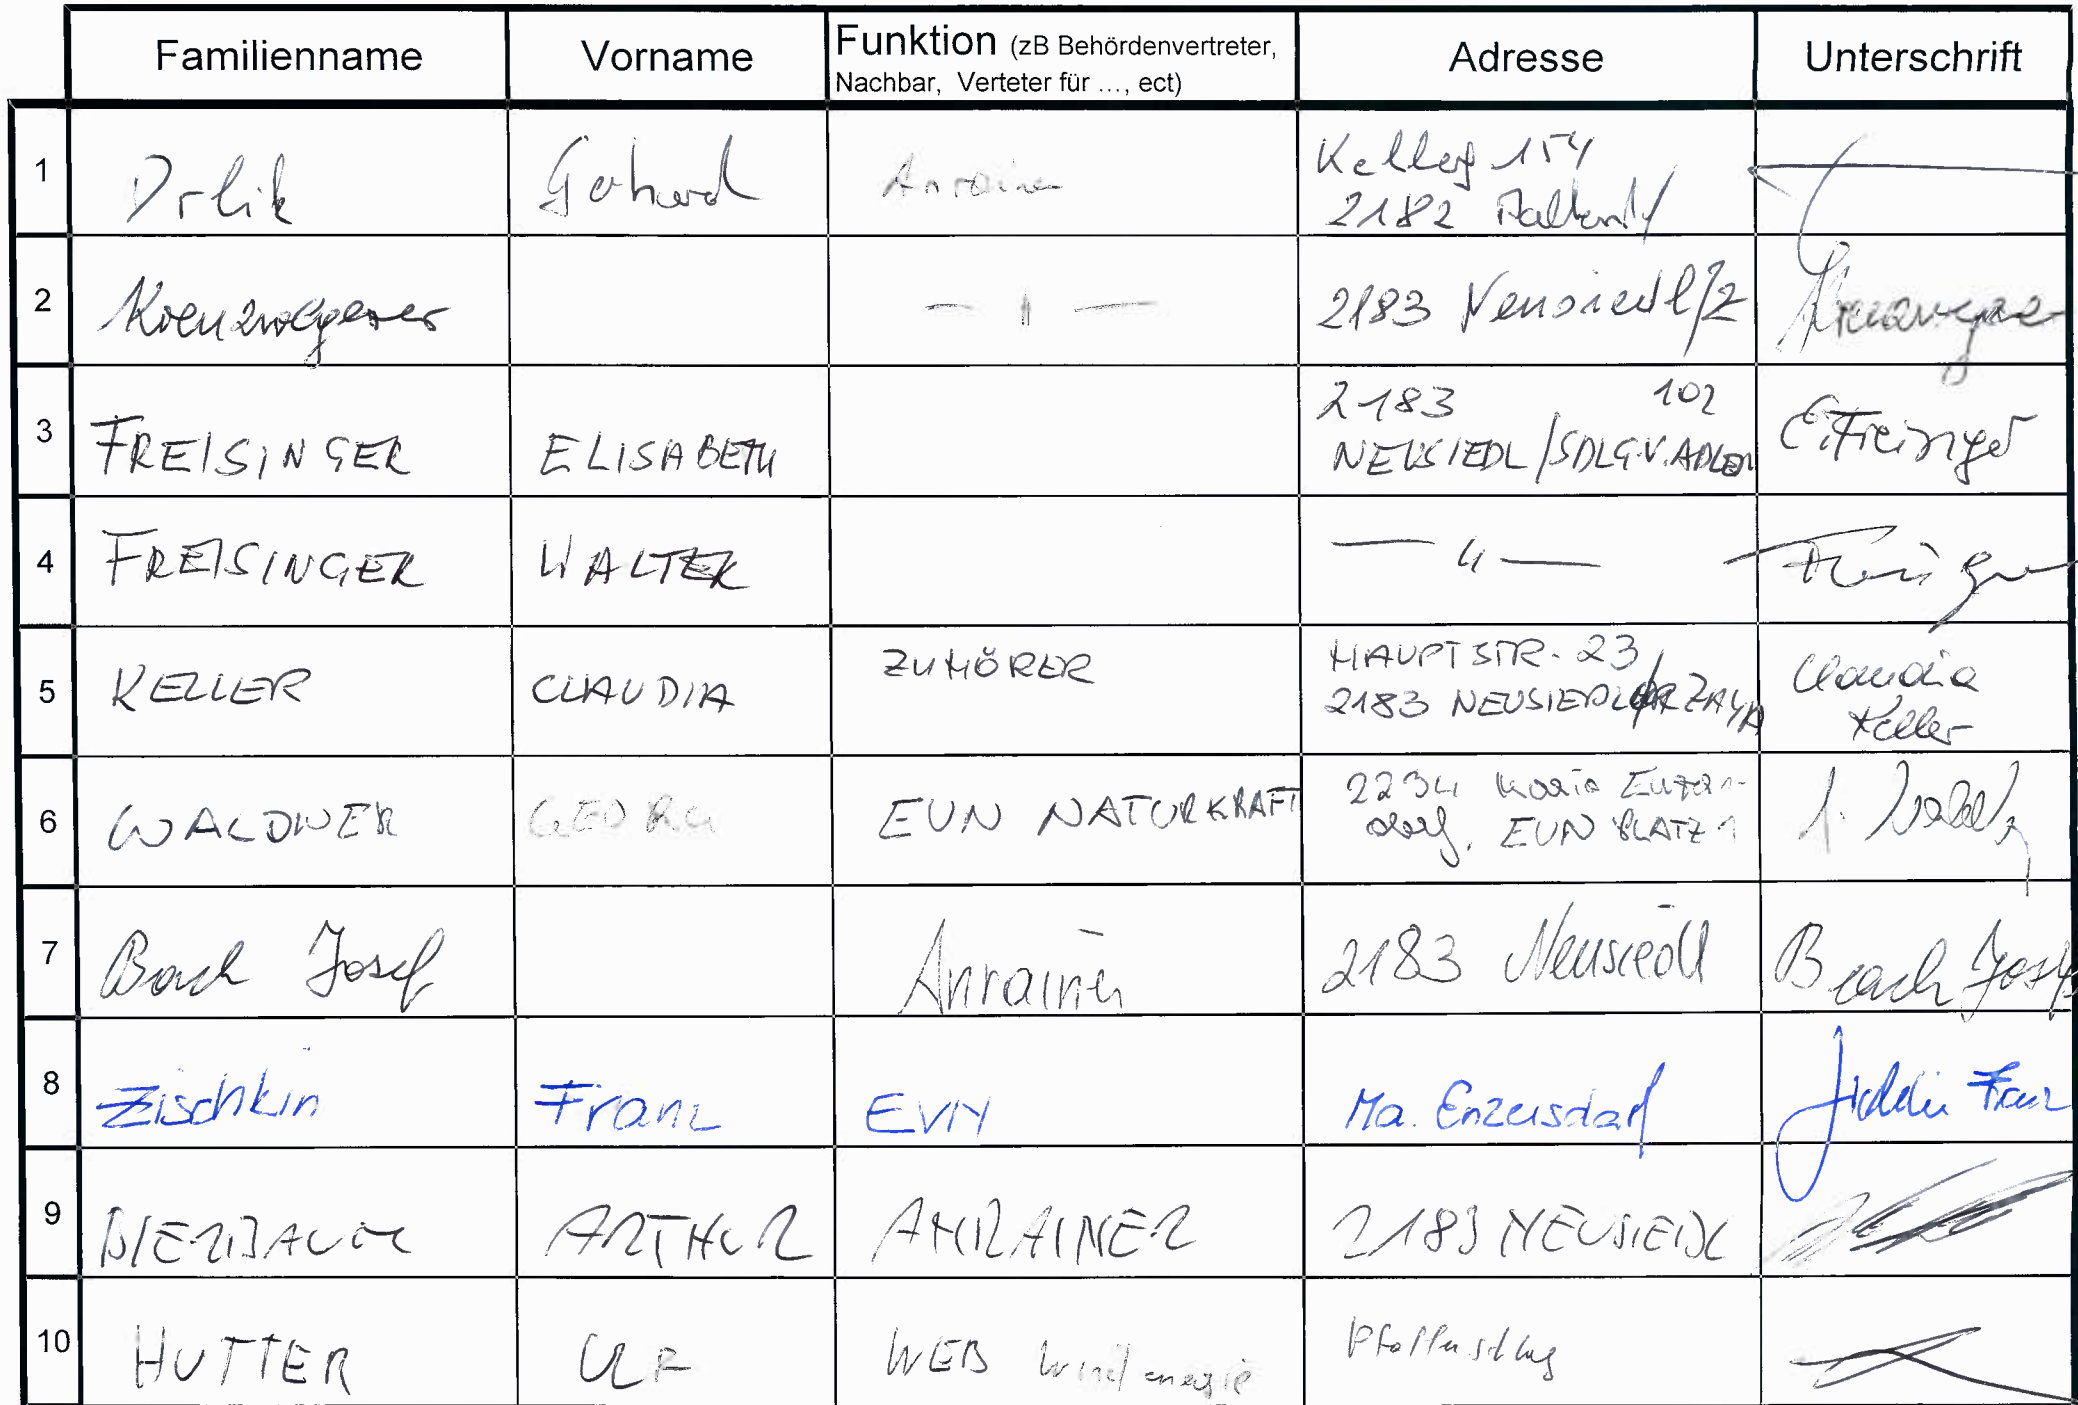 Familienname Vorname Funktion (zB Behördenvertreter, Nachbar, Verteter für ..., ect) Adresse Unterschrift
1 Drlik Gerhard Anrainer Kellerg 154
2182
2 — " — 2183 Neusiedl/Z
3 FREISINGER ELISABETH 2183 102
NEUSIEDL/SDLG.V.ADLER E.Freisinger
4 FREISINGER WALTER — " —
5 KELLER CLAUDIA ZUHÖRER HAUPTSTR. 23
2183 NEUSIEDL ZAYA Claudia
Keller
6 WALDNER GEORG EVN NATURKRAFT 2234 Maria Enzers-
dorf, EVN PLATZ 1
7 Bach Josef Anrainer 2183 Neusiedl Bach Josef
8 Zischkin Franz EVN Ma. Enzersdorf Franz
9 BIERBAUM ARTHUR ANRAINER 2183 NEUSIEDL
10 HUTTER ULF WEB Windenergie Pfaffenschlag